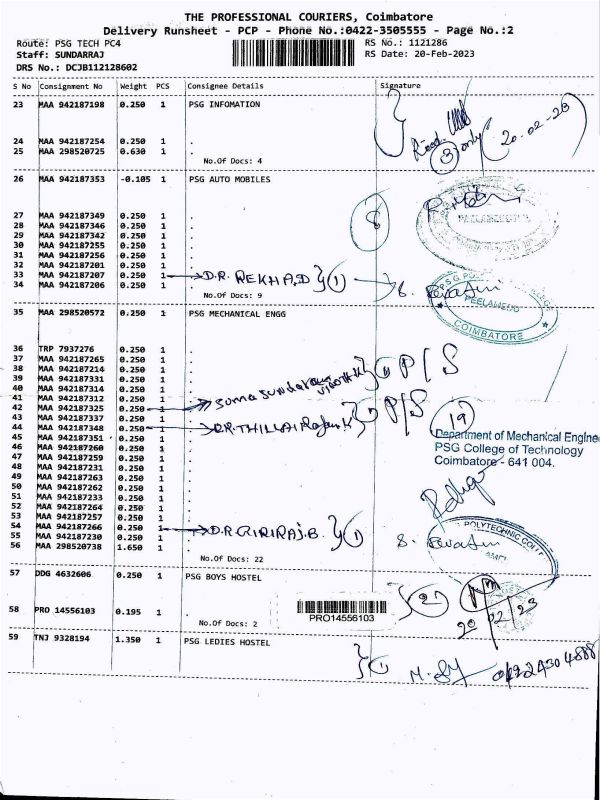 THE PROFESSIONAL COURIERS, Coimbatore
Delivery Runsheet - PCP - Phone No.:0422-3505555 - Page No.:2
Route: PSG TECH PC4 RS No.: 1121286
Staff: SUNDARRAJ RS Date: 20-Feb-2023
DRS No.: DCJB112128602
S No Consignment No Weight PCS Consignee Details Signature
23 MAA 942187198 0.250 1 PSG INFOMATION
24 MAA 942187254 0.250 1 .
25 MAA 298520725 0.630 1 .
No.Of Docs: 4
Recd. 3 only 20-02-23
26 MAA 942187353 -0.105 1 PSG AUTO MOBILES
8
27 MAA 942187349 0.250 1 .
28 MAA 942187346 0.250 1 .
29 MAA 942187342 0.250 1 .
30 MAA 942187255 0.250 1 .
31 MAA 942187256 0.250 1 .
32 MAA 942187201 0.250 1 .
33 MAA 942187207 0.250 1 D.R. REKHA.D } 1
34 MAA 942187206 0.250 1 .
No.Of Docs: 9
PEELAMEDU
COIMBATORE
35 MAA 298520572 0.250 1 PSG MECHANICAL ENGG
36 TRP 7937276 0.250 1 .
37 MAA 942187265 0.250 1 .
38 MAA 942187214 0.250 1 .
39 MAA 942187331 0.250 1 .
40 MAA 942187314 0.250 1 .
41 MAA 942187312 0.250 1 .
42 MAA 942187325 0.250 1 P/S
43 MAA 942187337 0.250 1 .
44 MAA 942187348 0.250 1 P/S
45 MAA 942187351 0.250 1 .
46 MAA 942187260 0.250 1 .
47 MAA 942187259 0.250 1 .
48 MAA 942187231 0.250 1 .
49 MAA 942187263 0.250 1 .
50 MAA 942187262 0.250 1 .
51 MAA 942187233 0.250 1 .
52 MAA 942187264 0.250 1 .
53 MAA 942187257 0.250 1 .
54 MAA 942187266 0.250 1 D.R GIRIRAJ.B. } 1
55 MAA 942187230 0.250 1 .
56 MAA 298520738 1.650 1 .
No.Of Docs: 22
19
Department of Mechanical Engine
PSG College of Technology
Coimbatore - 641 004.
POLYTECHNIC COLL
57 DDG 4632606 0.250 1 PSG BOYS HOSTEL
2
58 PRO 14556103 0.195 1 .
No.Of Docs: 2
PRO14556103
59 TNJ 9328194 1.350 1 PSG LEDIES HOSTEL
1